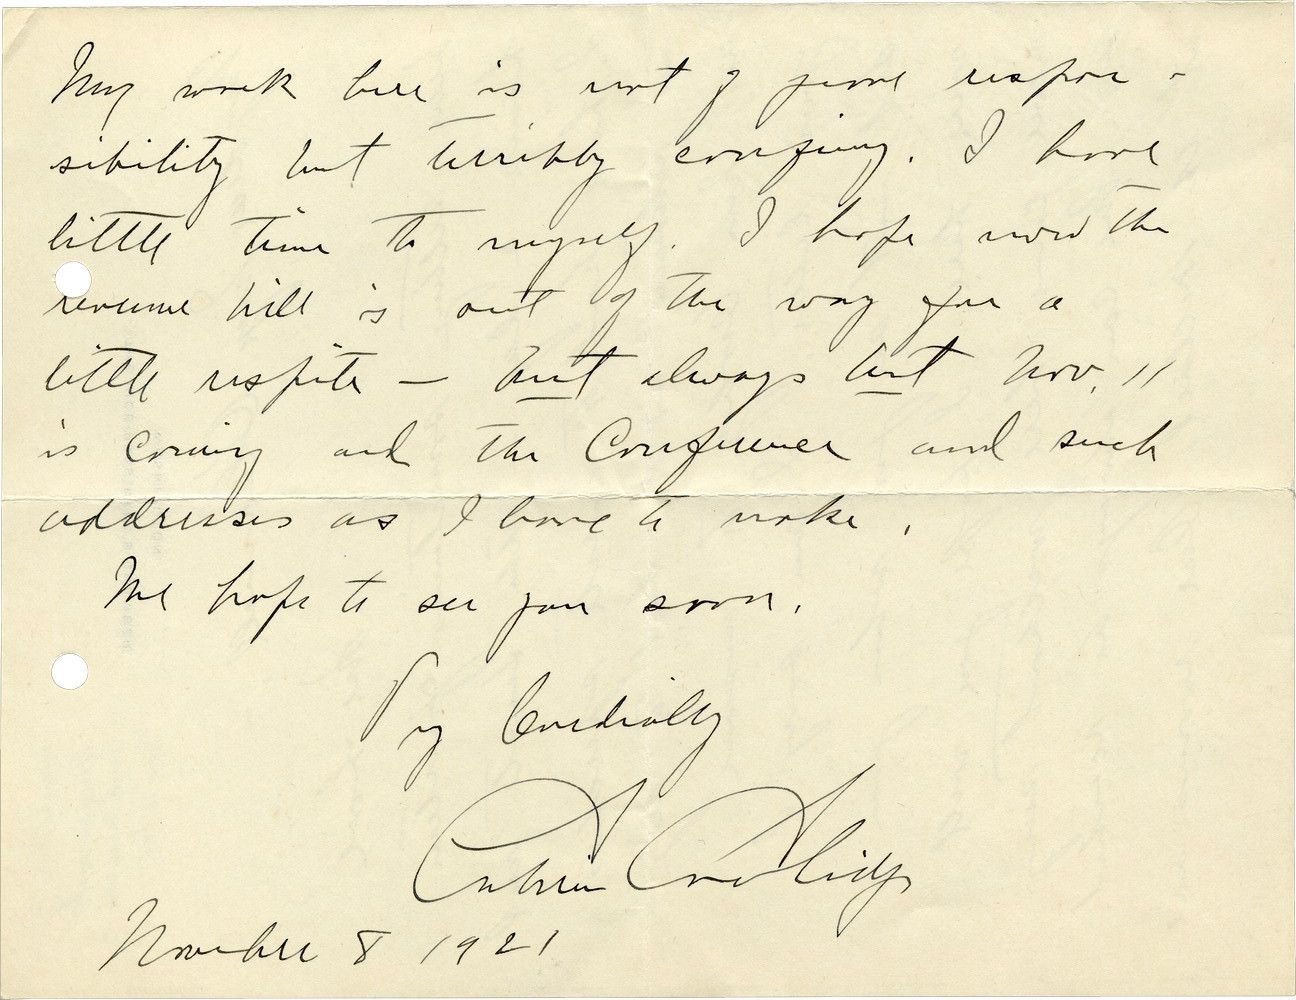 My work here is not of grave respon-
sibility but terribly confining. I have
little time to myself. I hope now the
revenue bill is out of the way for a
little respite — but always but Nov. 11
is coming and the Conference and such
addresses as I have to make.
We hope to see you soon.
Very Cordially
Calvin Coolidge
November 8 1921